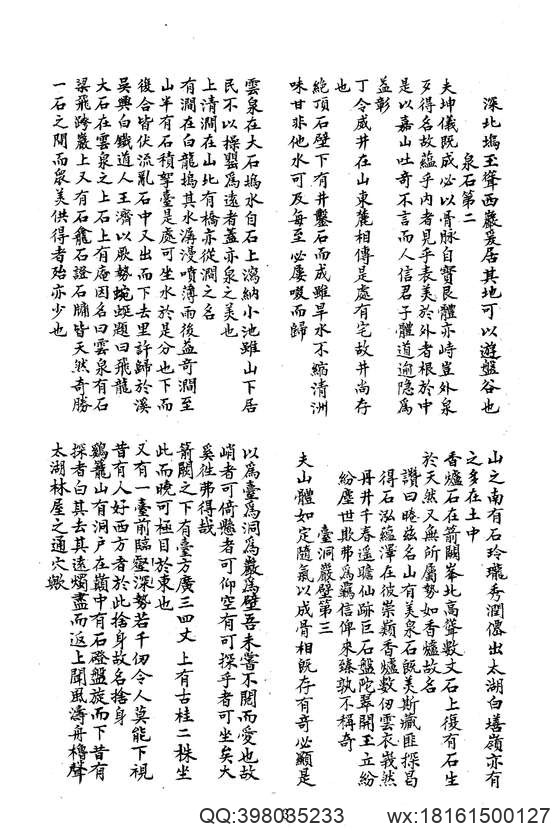 深北塢玉聳西巖爰居其地可以遊盤谷也
泉石第二
夫坤儀既成必以骨脉自賢艮體亦峙豈外泉
歹得名故蘊乎内者見乎表美於外者根於中
是以嘉山吐奇不言而人信君子體道逾隐爲
益彰
丁令威井在山東麓相傳是處有宅故井尚存
也
絶頂石壁下有井鑿石而成雖旱水不縮清洌
味甘非他水可及每至必屢啜而歸
雲泉在大石塢水自石上瀉納小池雖山下居
民不以操罌爲遠者蓋亦泉之美也
上清澗在山北有橋亦從澗之名
有澗在白龍塢其水潺湲噴薄雨後益奇澗至
山半有石積挐臺是處可坐水於是分也下而
後合皆佚流亂石中又出而下去里許歸於溪
吳興白鐵道人王濟以厥勢蜿蜒題曰飛龍
大石在雲泉之上石上有庵因名曰雲泉有石
梁飛跨巖上又有石龕石證石牗皆天然奇勝
一石之間而衆美供得者殆亦少也
山之南有石玲瓏秀潤儼出太湖白墡嶺亦有
之多在土中
香爐石在箭闕峯北髙聳數丈石上復有石生
於天然又無所屬勢如香爐故名
讚曰睠兹名山有美泉石既美斯藏匪探曷
得石泓蘊澤在彼崇巔香爐數仞雲衣㦸然
丹井千春遥瞻仙跡巨石盤陀翠開玉立紛
紛塵世欺弗爲羈信俾來臻孰不稱奇
臺洞巖壁第三
夫山體如定隨氣以成骨相既存有奇必顯是
以爲臺爲洞爲巖爲壁吾未嘗不閱而愛也故
峭者可倚懸者可仰空有可探乎者可坐矣大
奚徃弗得哉
箭闕之下有臺方廣三四丈上有古桂二株坐
此而晚可極目於東也
又有一臺前臨壑深勢若千仞令人莫能下視
昔有人好西方者於此捨身故名捨身
鷄籠山有洞户在巔中有石磴盤旋而下昔有
探者白其去其遠燭盡而返上聞風濤舟櫓聲
太湖林屋之通穴歟
QQ:398035233
wx:18161500127